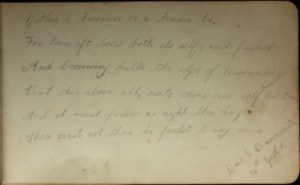 Neither a borrower or a lender be
For loan oft loses both its self and friend
And borrowing dulls the edge of husbandry
But this above all, unto thine own self be true
And it must follow as night the day
Thou canst not then be falset to any man